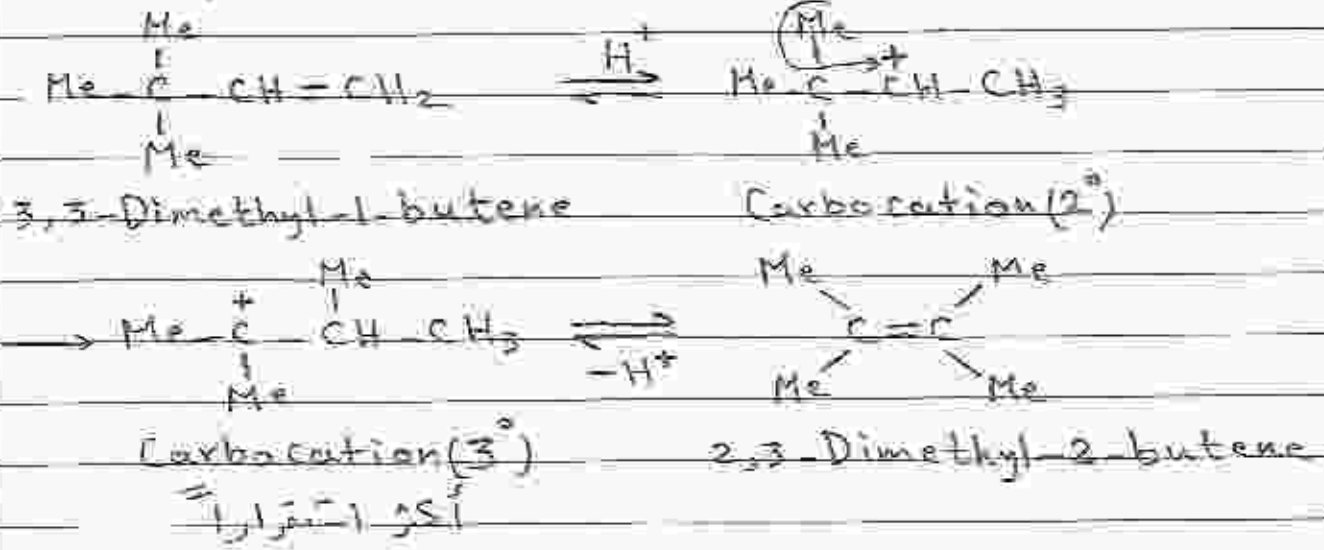 Me Me
Me - C - CH = CH2 ⇌ H+ Me - C - CH+ - CH3
Me Me
3,3-Dimethyl-1-butene Carbocation (2°)
Me Me Me
→ Me - C+ - CH - CH3 ⇌ -H+ C = C
Me Me Me
Carbocation (3°) 2,3-Dimethyl-2-butene
أكثر استقراراً